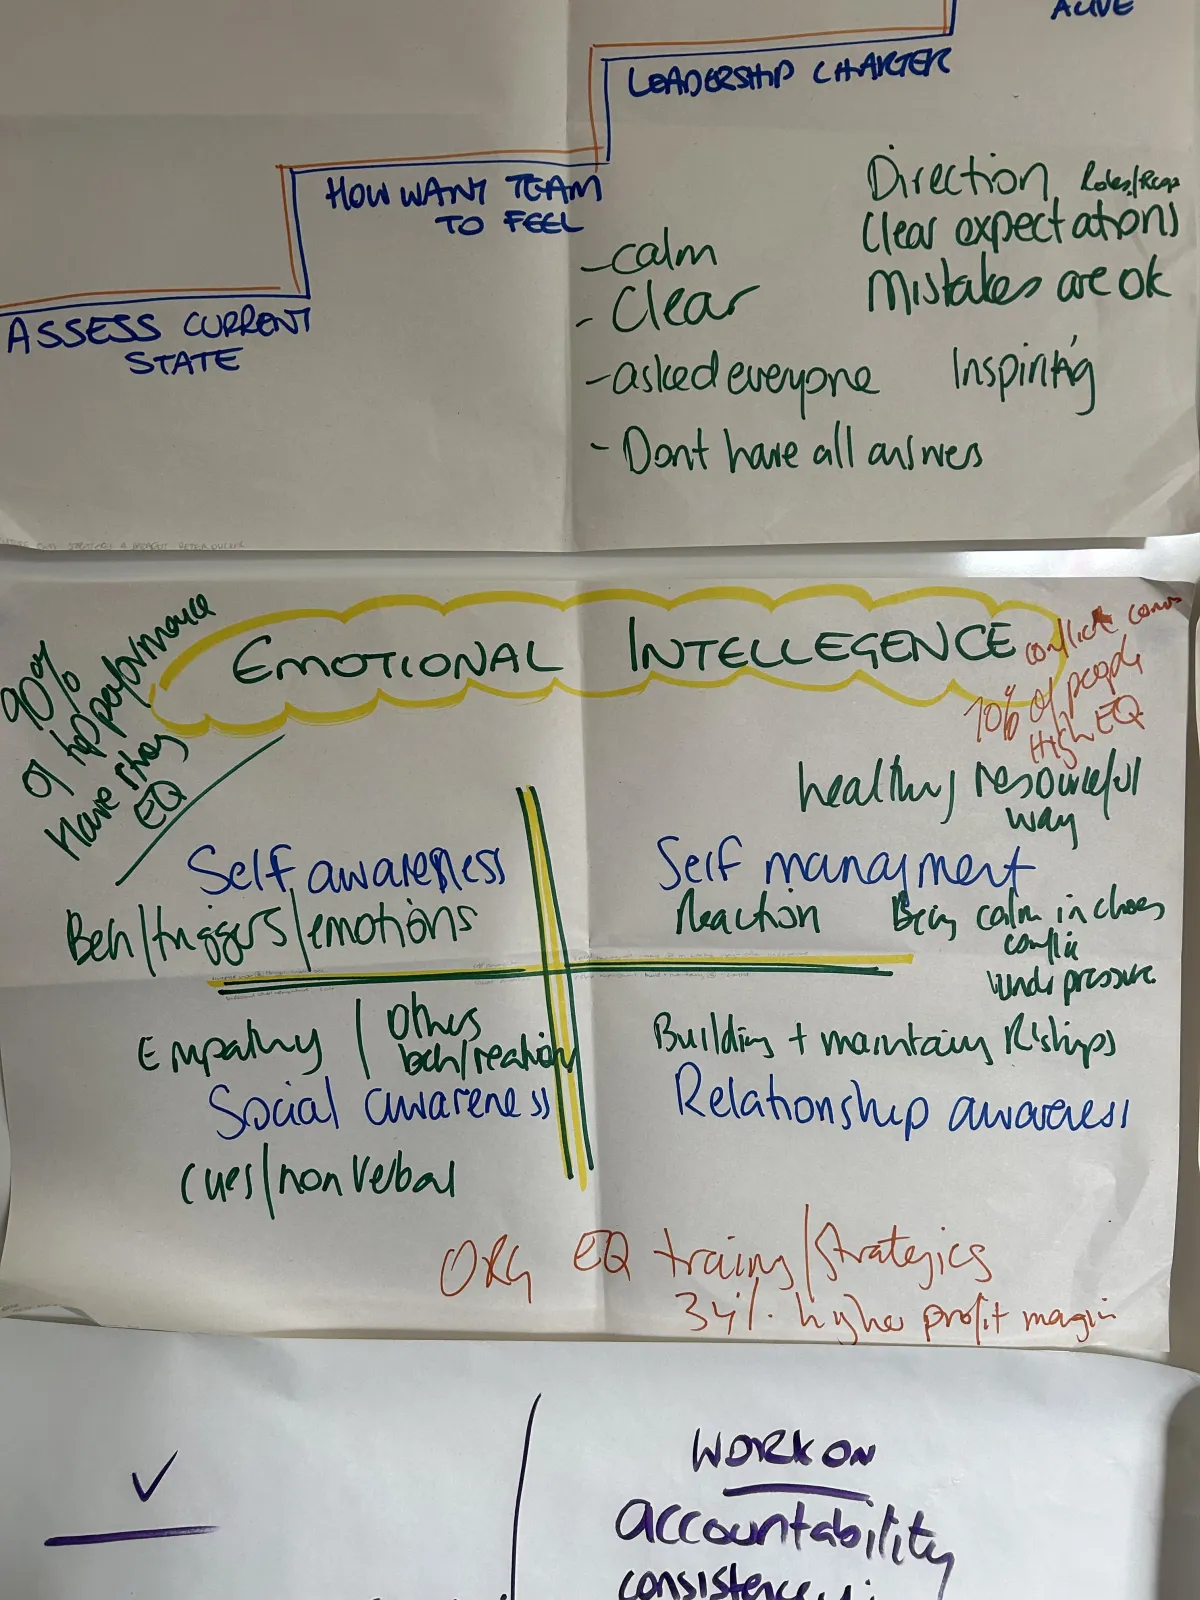 ALIVE
LEADERSHIP CHARTER
HOW WANT TEAM
TO FEEL
ASSESS CURRENT
STATE
- calm
- Clear
- asked everyone
- Dont have all answers
Direction Roles/Resp
Clear expectations
Mistakes are ok
Inspiring
EMOTIONAL INTELLEGENCE
90%
of top performance
Have strong
EQ
conflict comms
70% of people
High EQ
healthy resourceful
way
Self awareness
Beh/triggers/emotions
Self managment
Reaction
Being calm in chaos
conflic
under pressure
Empathy / Others
beh/reation
Social awareness
Cues/non Verbal
Building + maintaing R'ships
Relationship awareness
ORG EQ training/Strategics
34% higher profit margin
✓
WORK ON
accountability
consistency